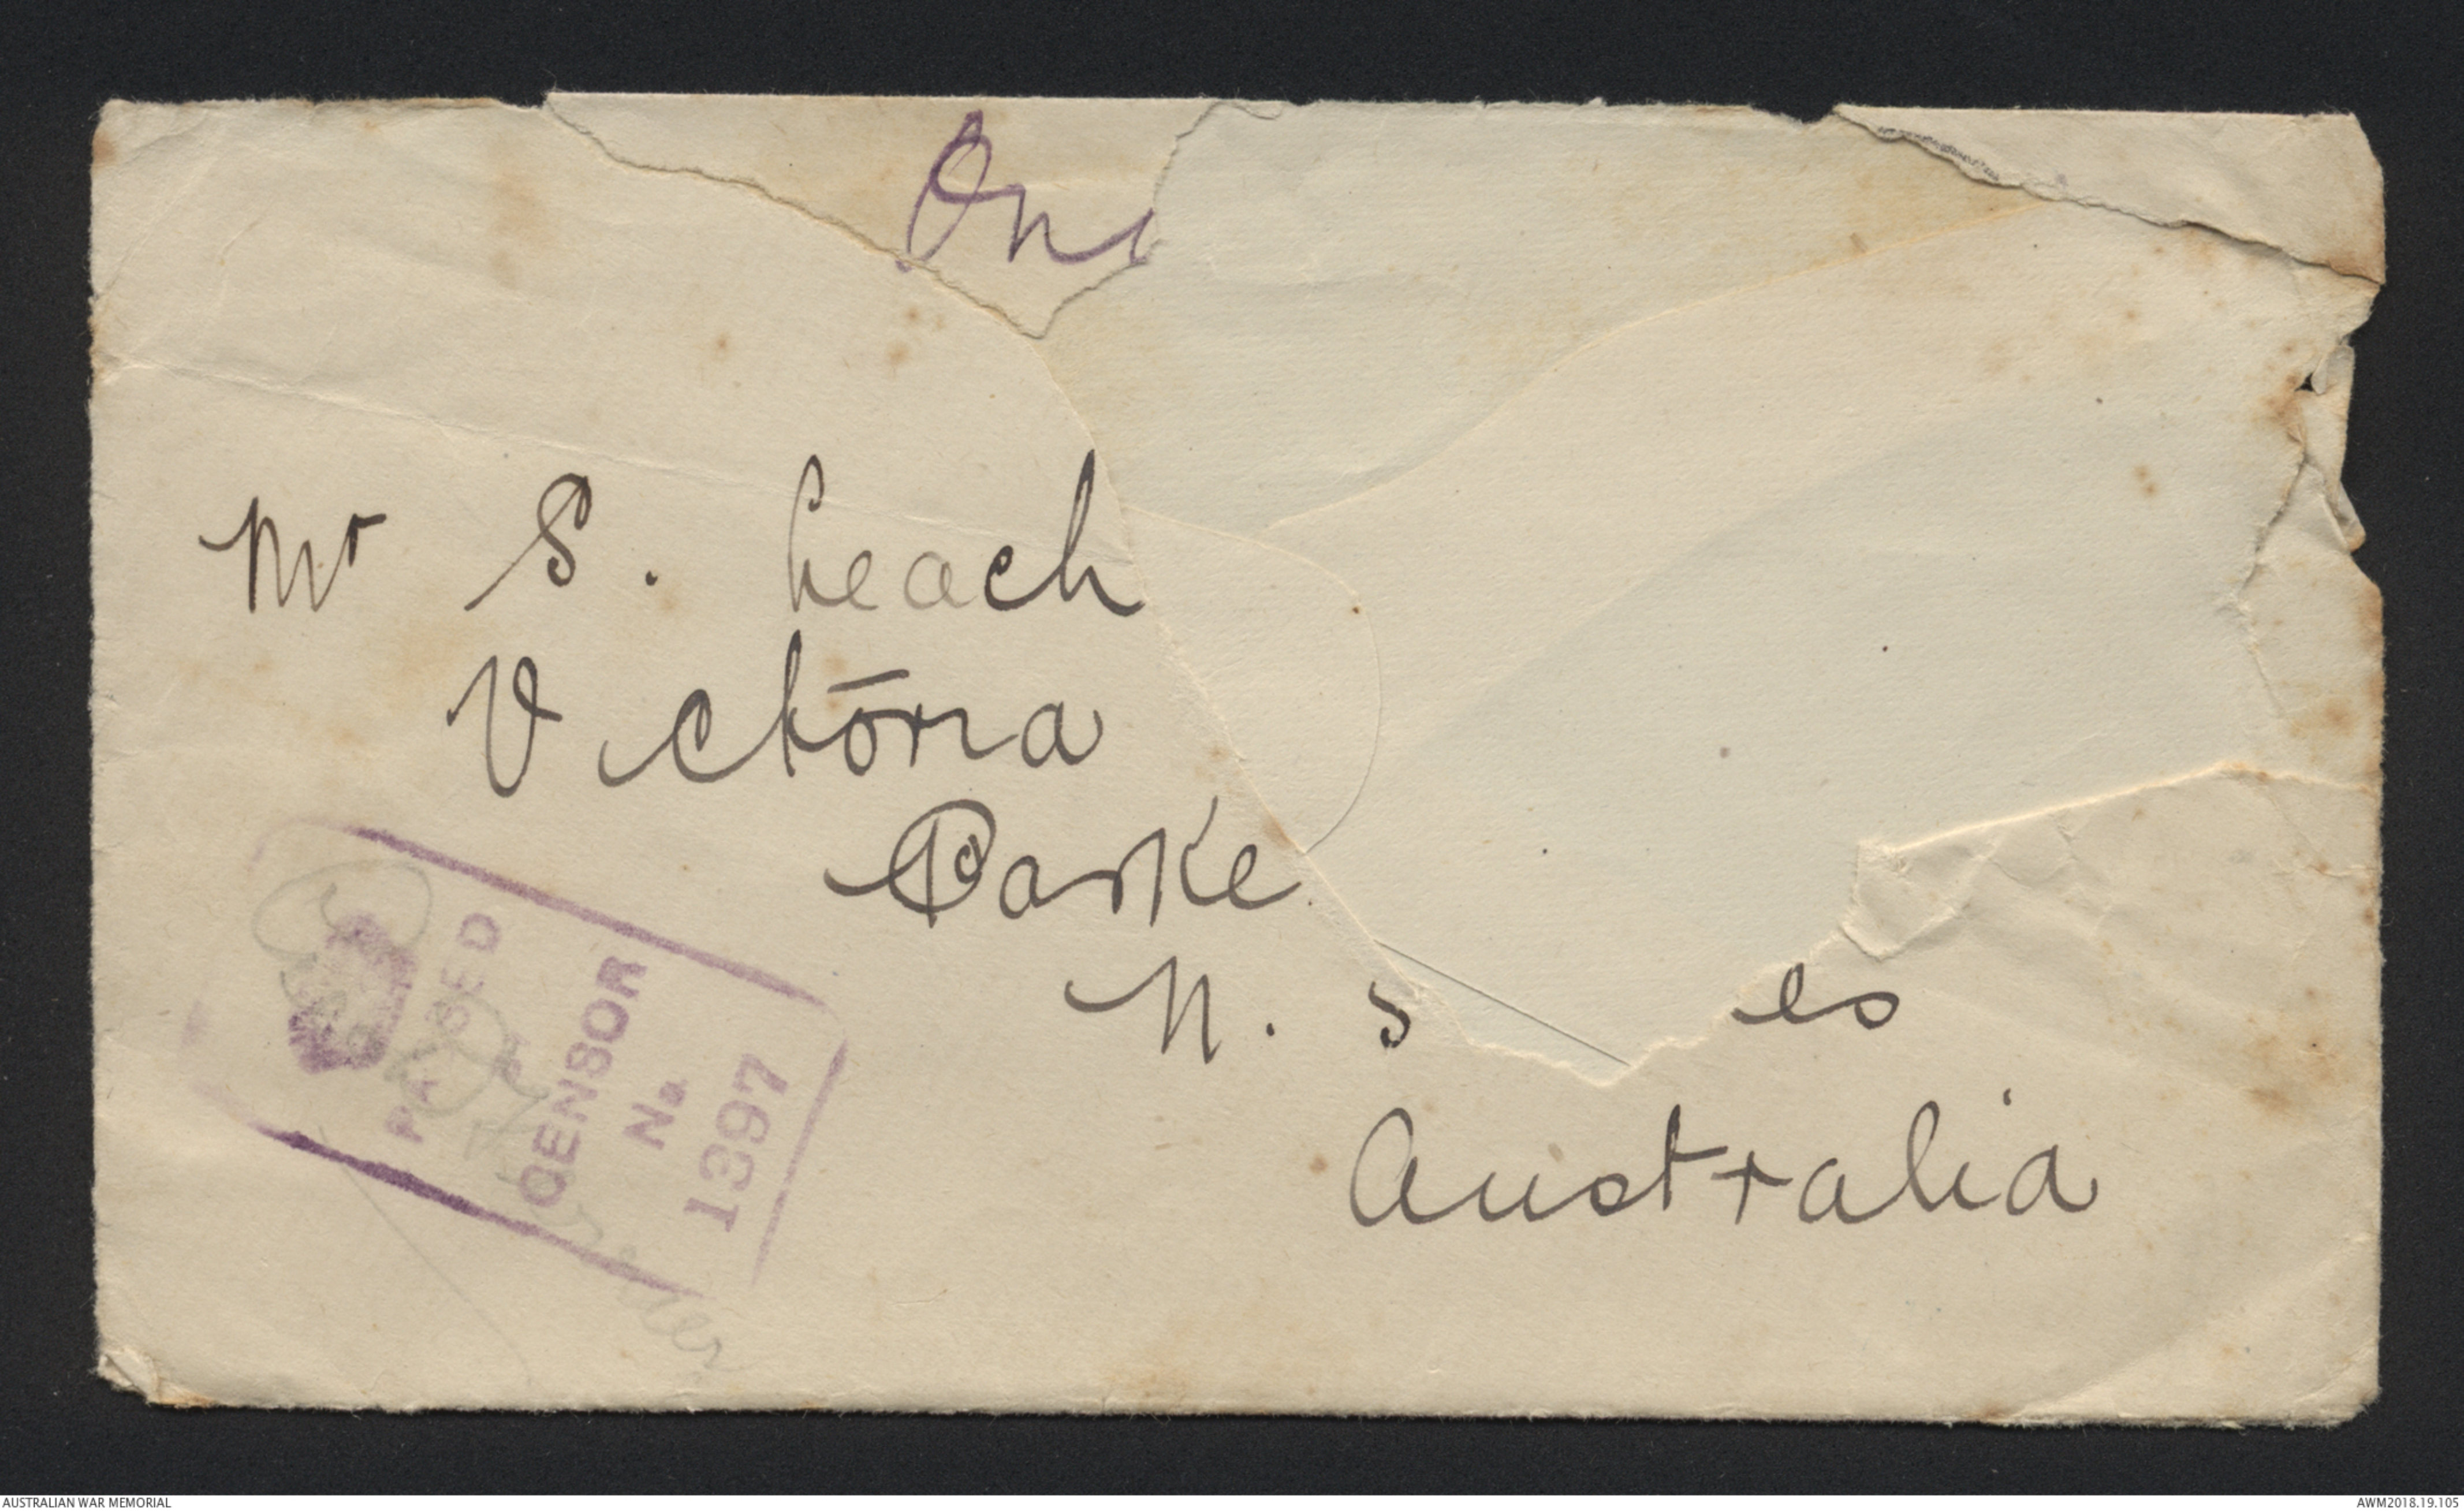 On
Mr S. Leach
Victoria
Parke
N. S es
Australia
PASSED
BY
CENSOR
No.
1397
AUSTRALIAN WAR MEMORIAL
AWM2018.19.105